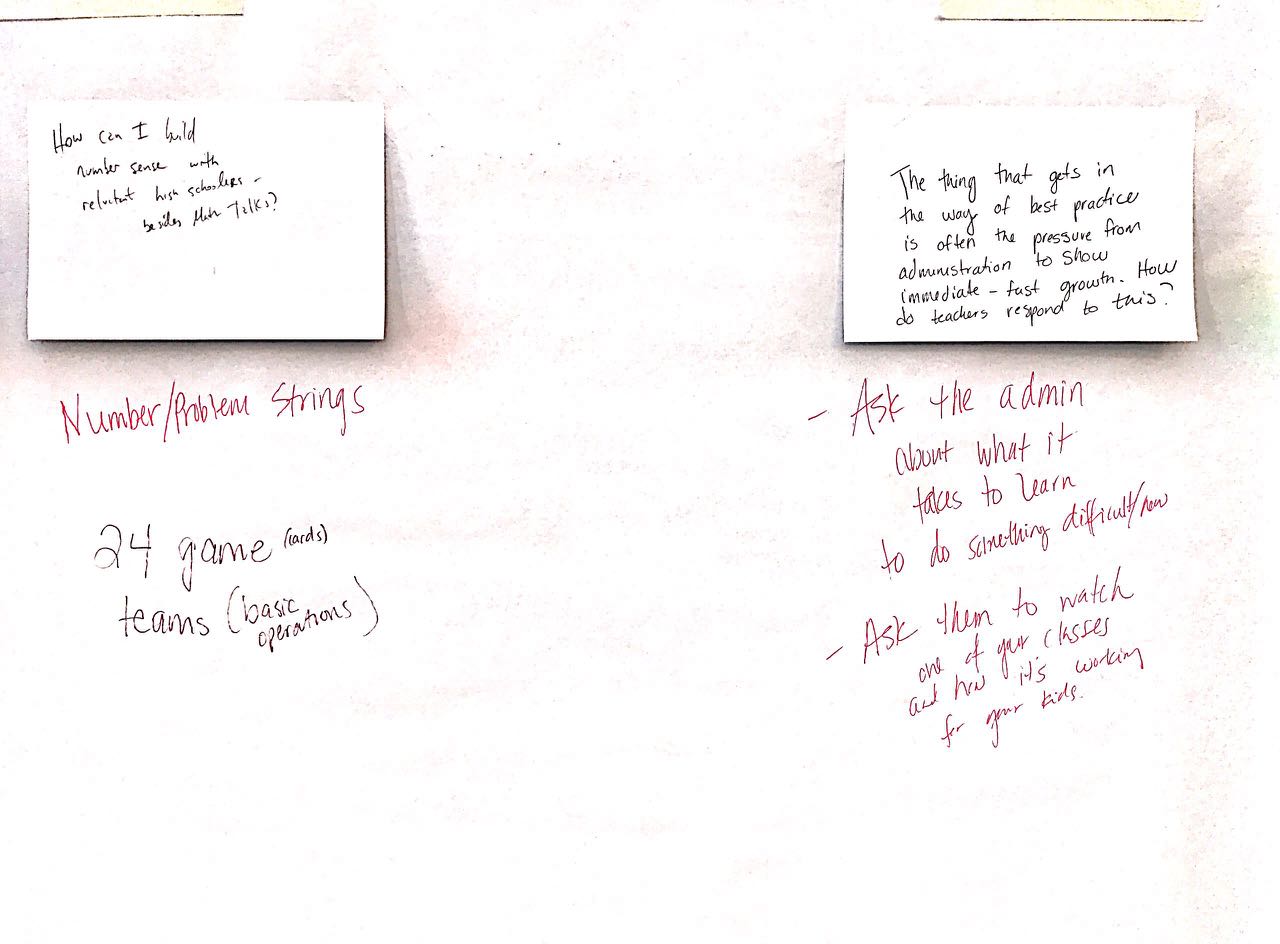 How can I build
number sense with
reluctant high schoolers -
besides Math Talks?
Number/Problem Strings
24 game (cards)
teams (basic
operations)
The thing that gets in
the way of best practice
is often the pressure from
administration to show
immediate - fast growth. How
do teachers respond to this?
- Ask the admin
about what it
takes to learn
to do something difficult/new
- Ask them to watch
one of your classes
and how it's working
for your kids.